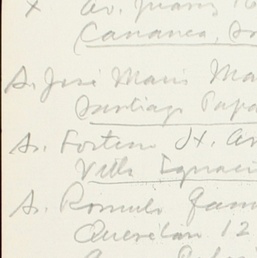 x Av. Juarez 1
Cananea, So
Sr. José Maria Ma
Santiago Papa
Sr. Fortino H. Ar
Villa Ignaci
Sr. Romulo
Querétaro 12